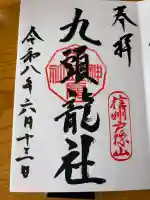 奉拝
信州戸隠山
九頭龍社
令和八年六月十二日